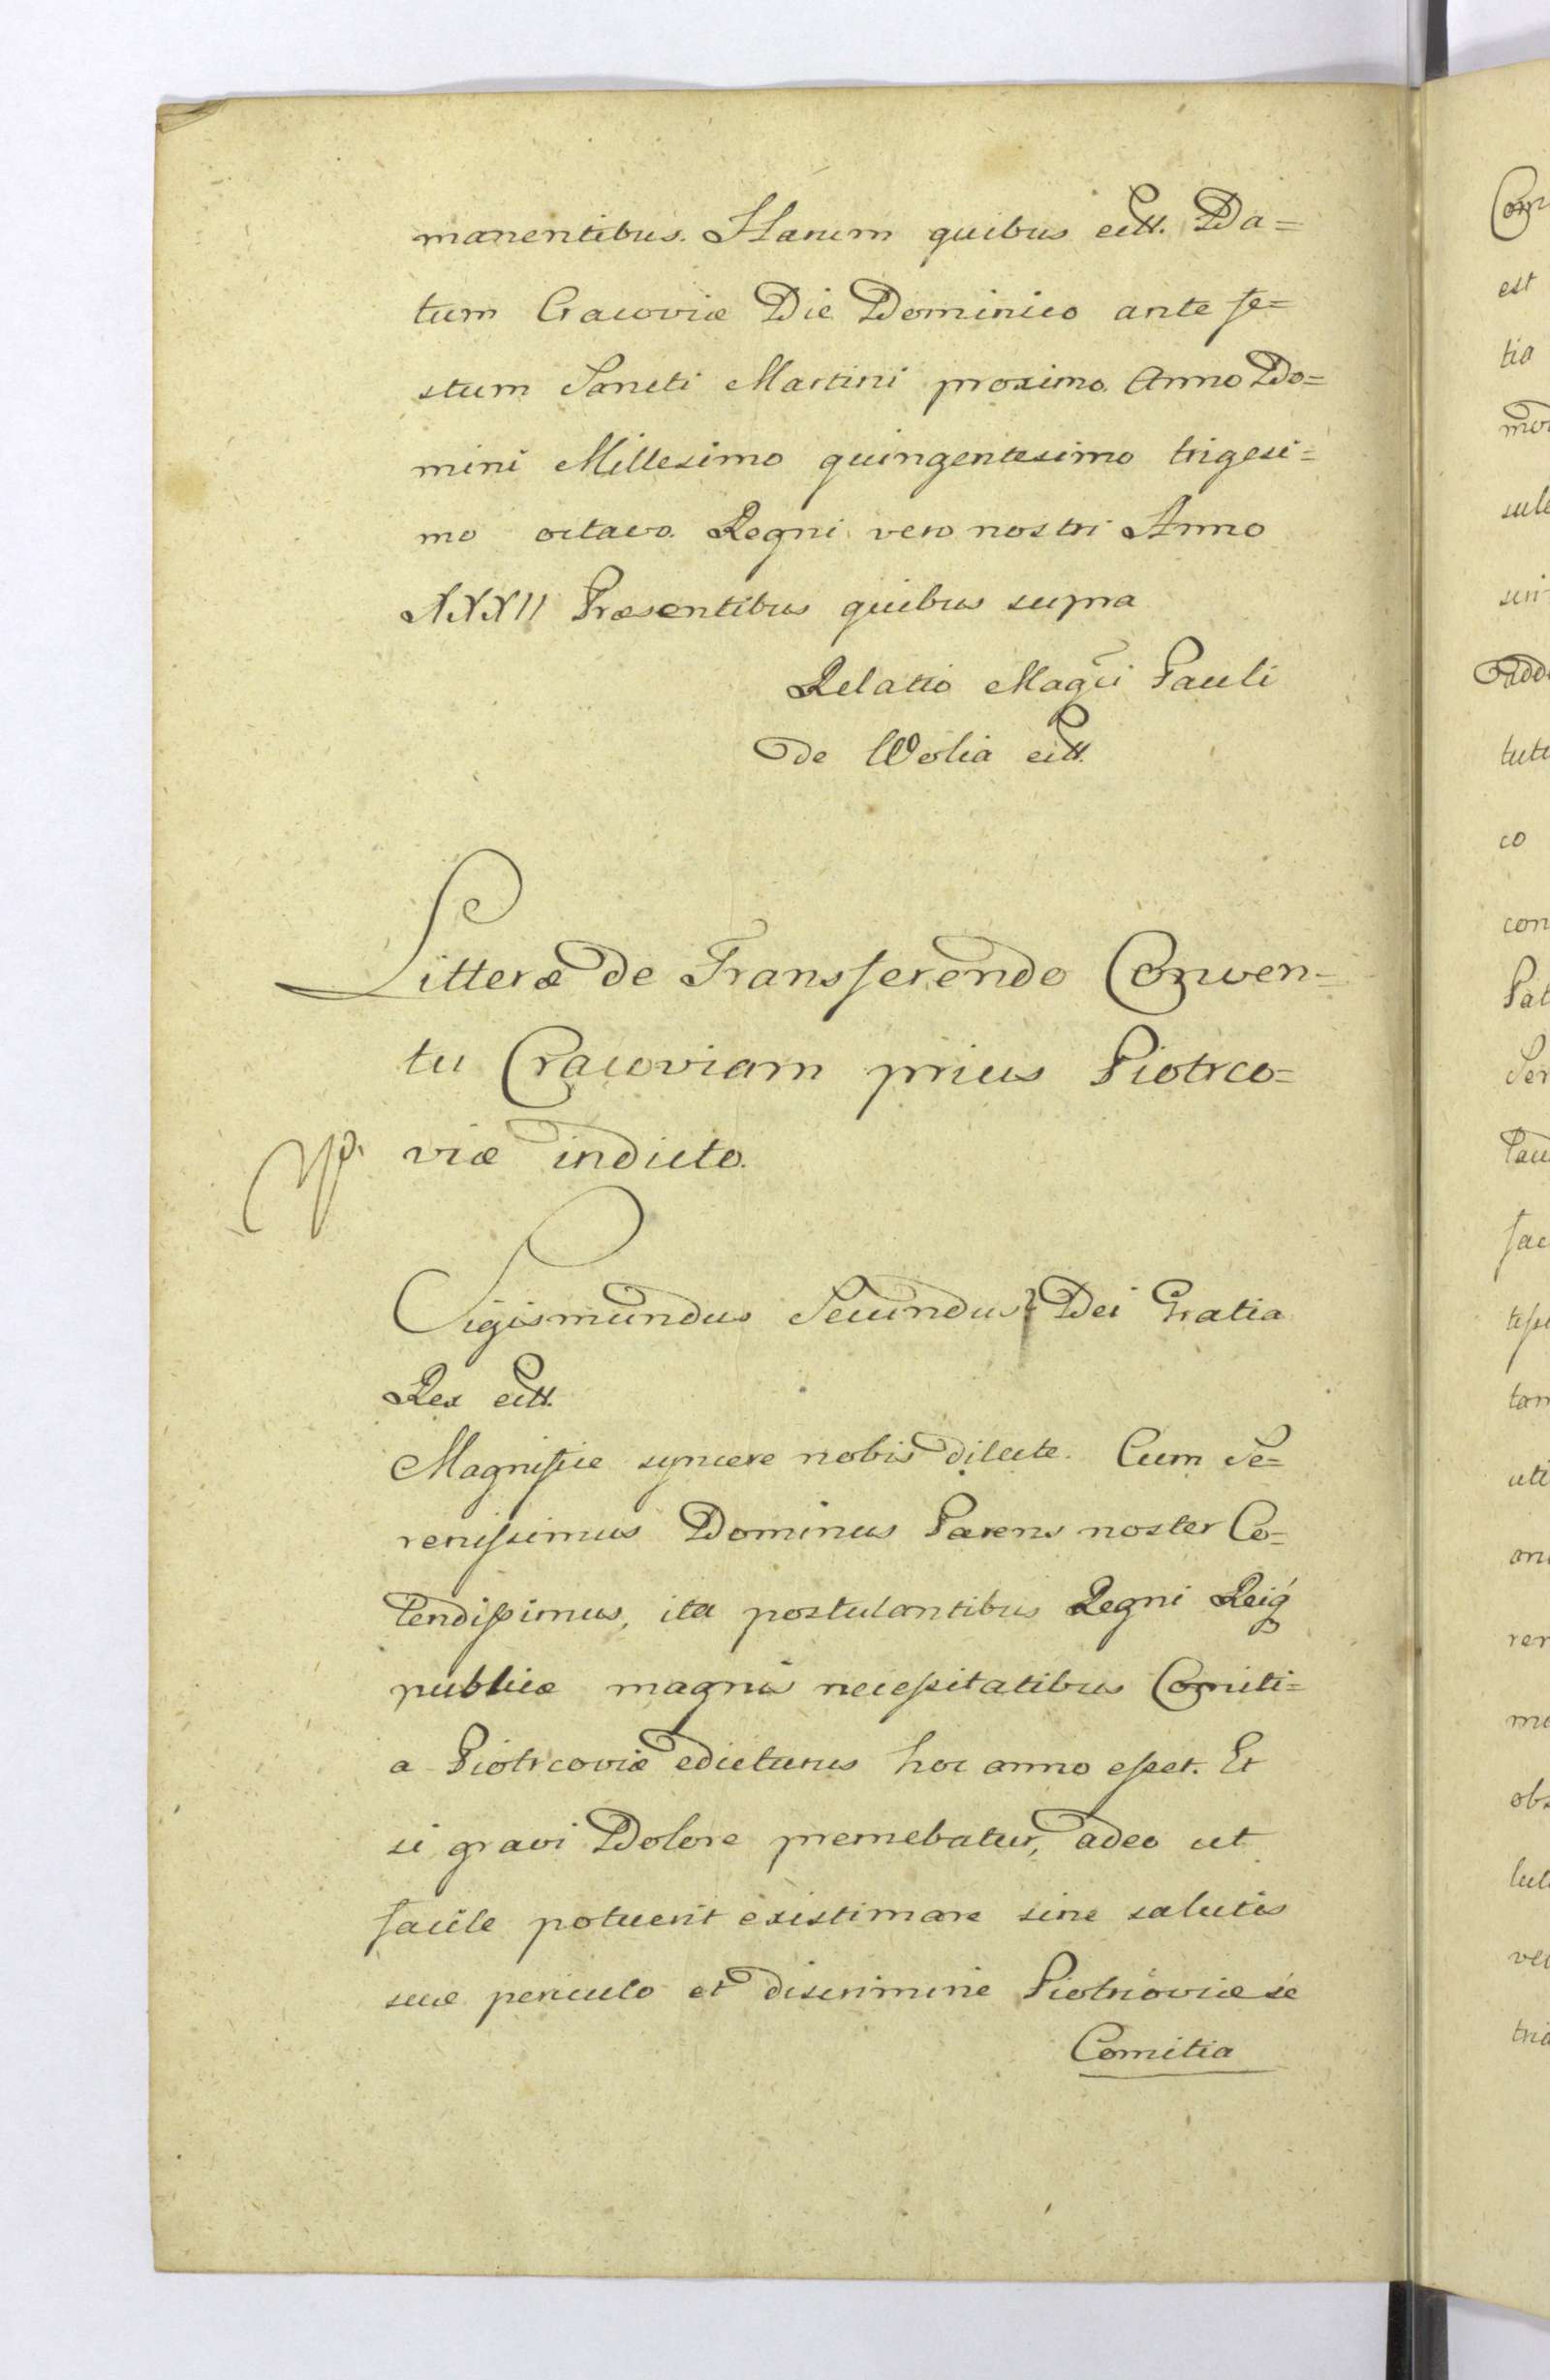 manentibus. Harum quibus ett. Da=
tum Cracoviæ Die Dominico ante fe=
stum Sancti Martini proximo. Anno Do=
mini Millesimo quingentesimo trigesi=
mo octavo. Regni vero nostri Anno
XXXII Præsentibus quibus supra
Relatio Magci Pauli
de Wolia ett.
Litteræ de Transferendo Conven=
tu Cracoviam prius Piotrco=
viæ indicto.
Sigismundus Secundus Dei Gratia
Rex ett.
Magnifice syncere nobis dilecte. Cum Se=
renissimus Dominus Parens noster Co=
lendissimus, ita postulantibus Regni Reiq
publicæ magnis necessitatibus Comiti=
a Piotrcoviæ edicturus hoc anno esset. Et
si gravi Dolore premebatur, adeo ut
facile potuerit existimare sine salutis
suæ periculo et discrimine Piotrcoviæ se
Comitia
est
tia
co